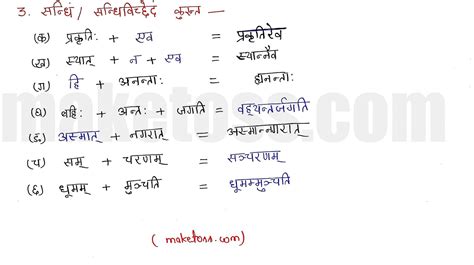 3. सन्धिं / सन्धिविच्छेदं कुरुत —
(क) प्रकृतिः + एव = प्रकृतिरेव
(ख) स्यात् + न + एव = स्यान्नैव
(ग) हि + अनन्ताः = ह्यनन्ताः
(घ) बहिः + अन्तः + जगति = बह्यन्तर्जगति
(ङ) अस्मात् + नगरात् = अस्मान्नगरात्
(च) सम् + चरणम् = सञ्चरणम्
(छ) धूमम् + मुञ्चति = धूमम्मुञ्चति
maketoss.com
(maketoss.com)